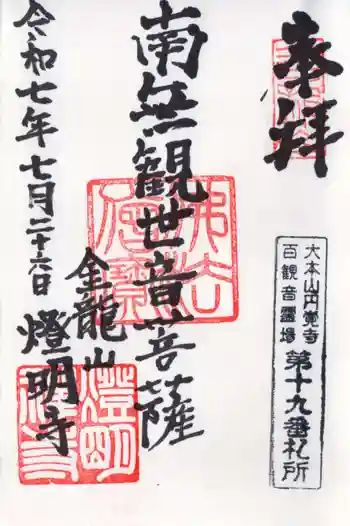 奉拝
大本山円覚寺
百観音霊場 第十九番札所
南無観世音菩薩
金龍山
燈明寺
令和七年七月二十六日